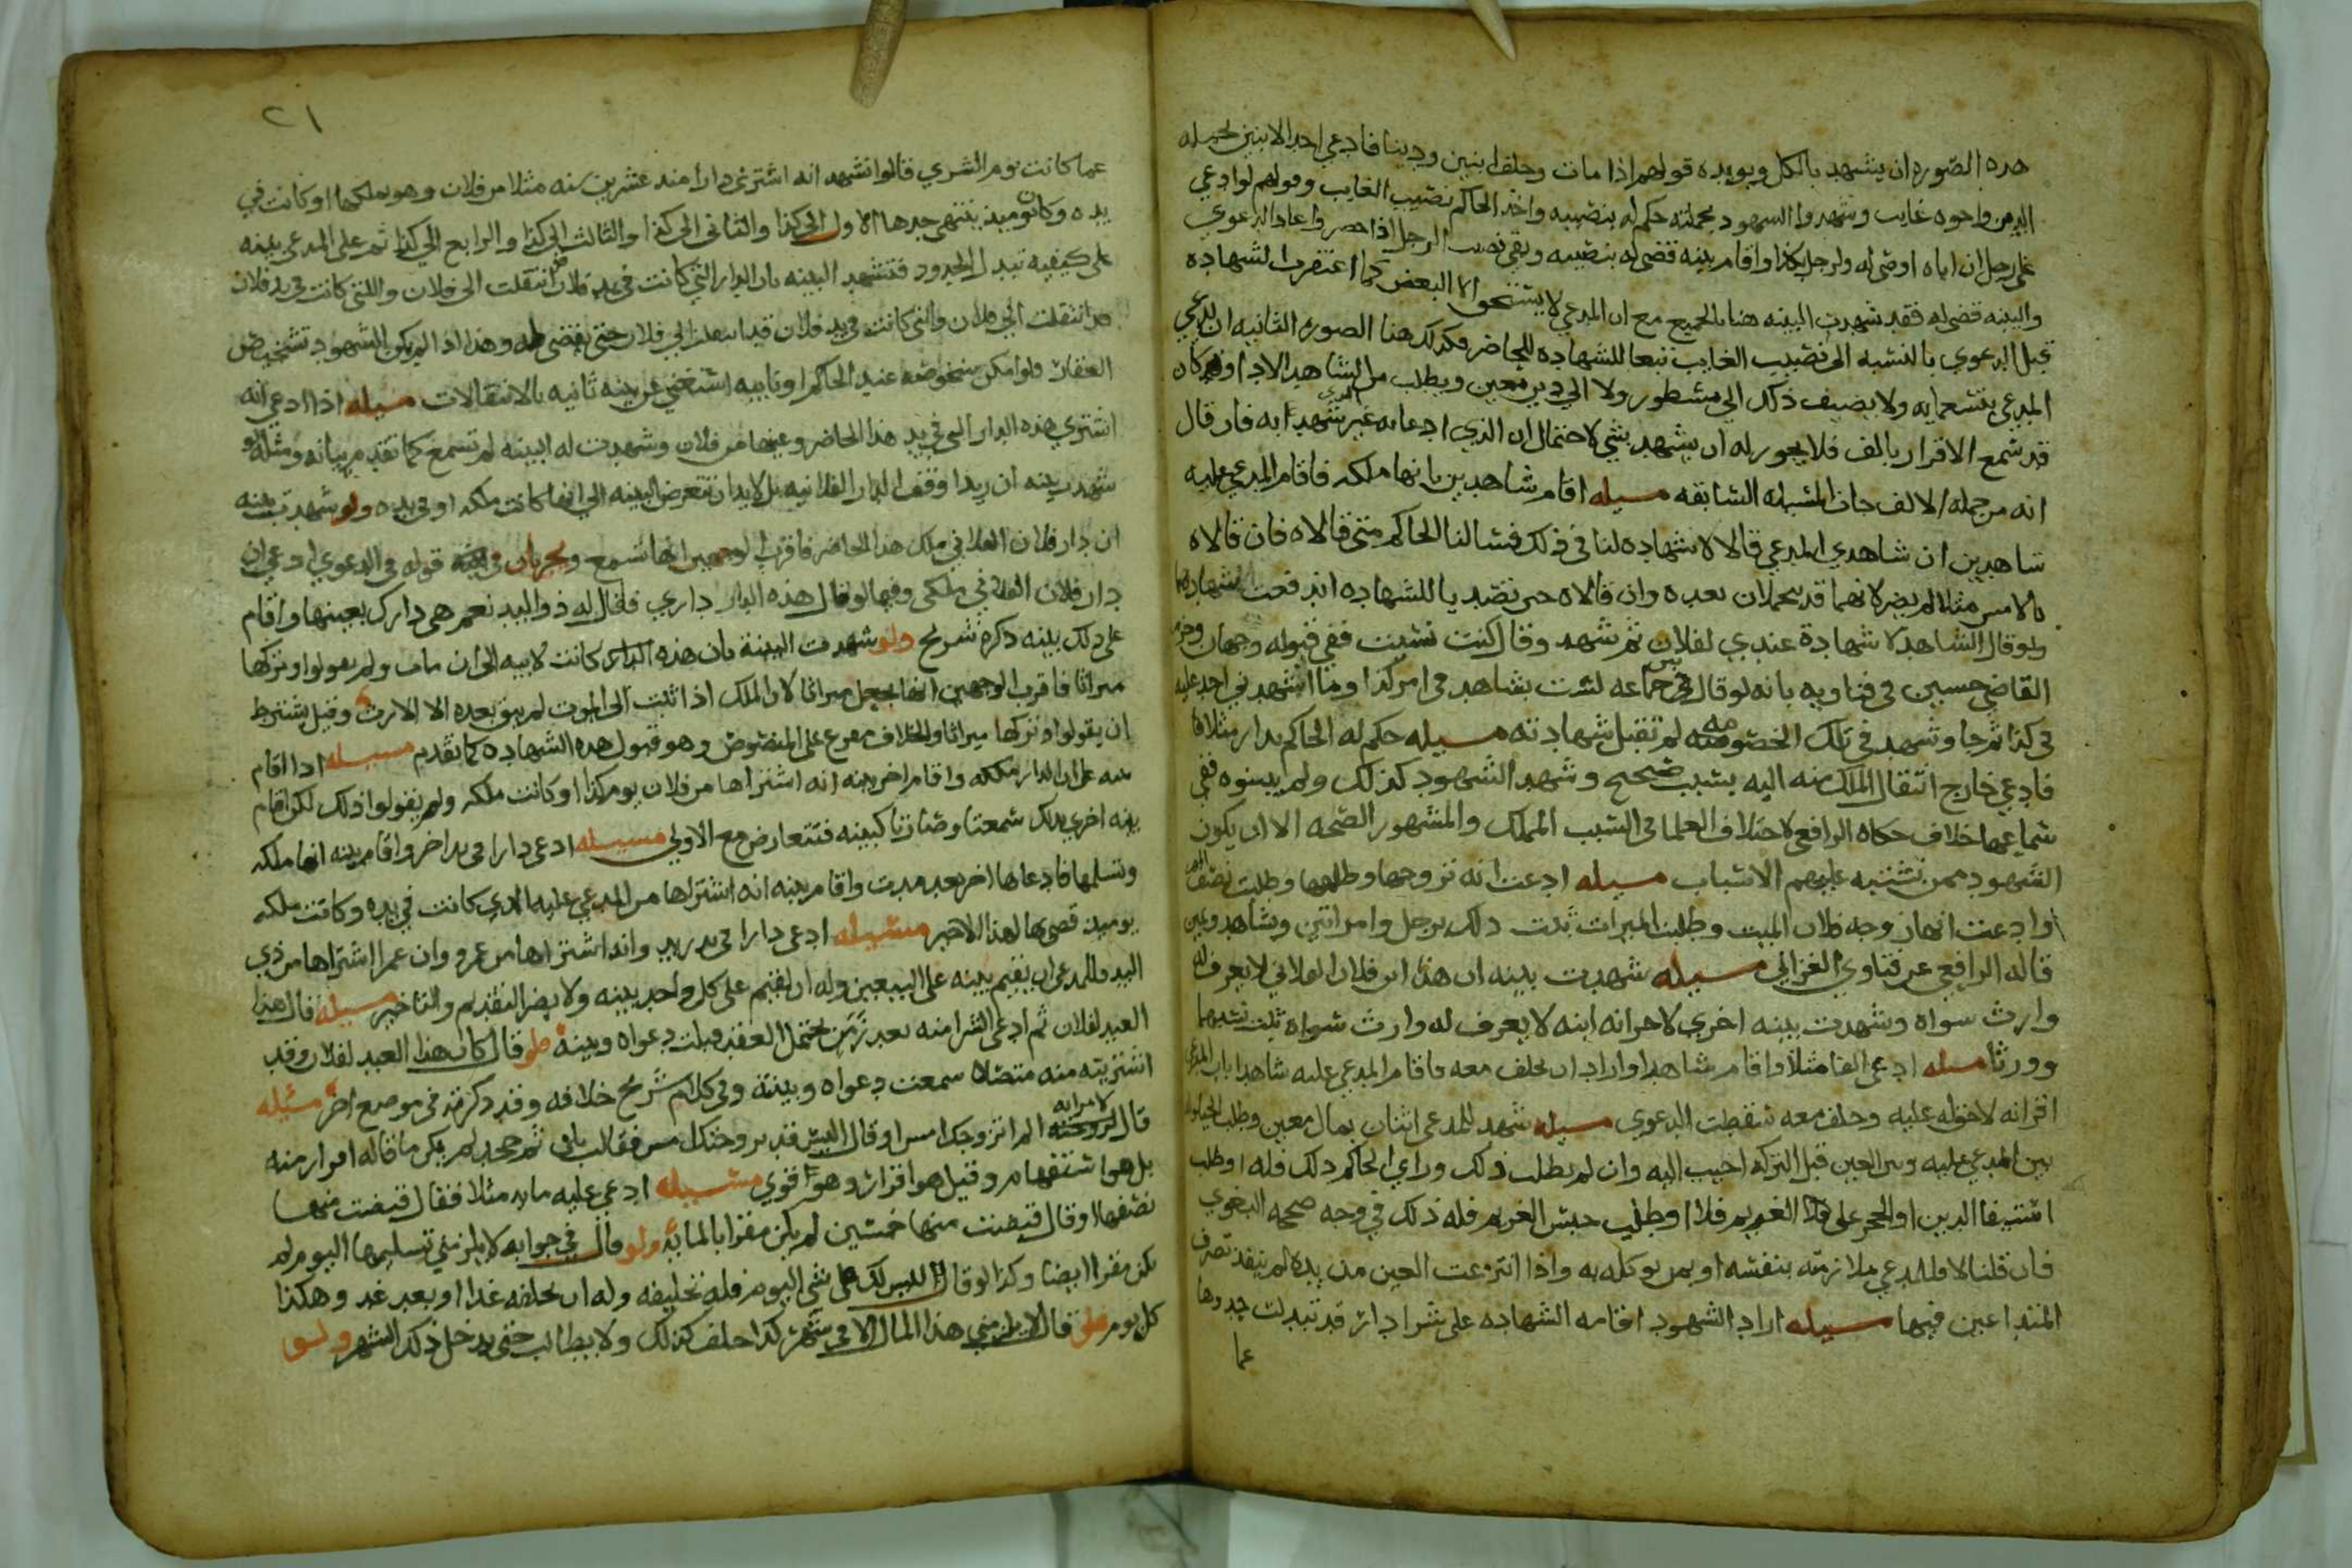 هذه الصوره ان يشهد بالكل ويويده قولهم اذا مات وخلف ابنين ودينا فادعي احد الابنين بجمله
الدين واخوه غايب وشهدوا الشهود بجملته حكم له بنصيبه واخذ الحاكم نصيب الغايب وقولهم لو ادعي
على رجل ان اباه اوصى له ولرجل بكذا واقام بينه قضي له بنصيبه وبقي نصيب الرجل اذا حضر واعاد الدعوي
والبينه قضي له فقد شهدت البينه هنا بالجميع مع ان المدعي لا يستحق الا البعض كما اغتفرت الشهاده
قبل الدعوي بالنسبه الى نصيب الغايب تبعا للشهاده للحاضر فكذلك هنا الصوره الثانيه ان يدعي
المدعي بتسعمايه ولا يضيف ذلك الي مسطور ولا الي دين معين ويطلب من الشاهد الادا وقد كان
قد سمع الاقرار بالف فلا يجوز له ان يشهد بشي لاحتمال ان الذي ادعا به غير المشهد به فان قال
انه من جمله الالف جات المسيله السابقه مسيله اقام شاهدين بانها ملكه فاقام المدعي عليه
شاهدين ان شاهدي المدعي قالا لا شهاده لنا في ذلك فسالنا الحاكم متى قالاه فان قالاه
بالامس مثلا لم يضر لانهما قد يتحملان بعده وان قالاه حين تصديا للشهاده اندفعت شهادتهما
ولو قال الشاهد لا شهادة عندي لفلان ثم شهد وقال كنت نسيت ففي قبوله وجهان وجزم
القاضي حسين في فتاويه بانه لو قال بين جماعه لست بشاهد في امر كذا وما اشهدني احد عليه
في كذا ثم جا وشهد في تلك الخصومه لم تقبل شهادته مسيله حكم له الحاكم بدار مثلا
فادعي خارج انتقال الملك منه اليه بسبب صحيح وشهد الشهود كذلك ولم يبينوه ففي
سماعها خلاف حكاه الرافعي لاختلاف العلما في السبب المملك والمشهور الصحه الا ان يكون
الشهود ممن تشتبه عليهم الاسباب مسيله ادعت انه تزوجها وطلقها وطلبت نصف المهر
او ادعت انها زوجه فلان الميت وطلبت الميراث ثبت ذلك برجل وامراتين وشاهد ويمين
قاله الرافعي عن فتاوي الغزالي مسيله شهدت بينه ان هذا ابن فلان الفلاني لا يعرف له
وارث سواه وشهدت بينه اخري لاخر انه ابنه لا يعرف له وارث سواه ثبت نسبهما
وورثا مسله ادعي الفا مثلا واقام شاهدا واراد ان يحلف معه فاقام المدعي عليه شاهدا بان المدعي
اقر انه لا حق له عليه وحلف معه سقطت الدعوي مسيله شهد للمدعي اثنان بمال معين وطلب الحيلوله
بين المدعي عليه وبين العين قبل التزكيه اجيب اليه وان لم يطلب ذلك وراي الحاكم ذلك فله او طلب
استيفا الدين او الحجر على الغريم فلا او طلب حبس الغريم فله ذلك في وجه صححه البغوي
فان قلنا لا فللمدعي ملازمته بنفسه او بمن يوكله به واذا انتزعت العين من يده لم ينفذ تصرف
المتداعين فيها مسيله اراد الشهود اقامه الشهاده على شرا دار قد تبدلت حدودها
عما
٢١
عما كانت يوم الشري قالوا نشهد انه اشترى دارا منذ عشرين سنه مثلا من فلان وهو يملكها او كانت في
يده وكان يوميذ ينتهي حدها الاول الي كذا والثاني الى كذا والثالث الى كذا والرابع الي كذا ثم على المدعي بينه
على كيفيه تبدل الحدود فتشهد البينه بان الدار التي كانت في يد فلان انتقلت الى فلان واللتي كانت في يد فلان
قد انتقلت الي فلان والتي كانت في يد فلان قد انتقلت الي فلان حتى يقضى له وهذا اذا لم يمكن الشهود تشخيص
العقار فلو امكن شخوصه عند الحاكم او نايبه استغني عن بينه ثانيه بالانتقالات مسيله اذا ادعي انه
اشتري هذه الدار التي في يد هذا الحاضر وعينها من فلان وشهدت له البينه لم تسمع كما تقدم بيانه ومثله لو
شهدت بينه ان زيدا وقف الدار الفلانيه بل لا بد ان تتعرض البينه الي انها كانت ملكه او في يده ولو شهدت بينه
ان دار فلان الفلاني ملك هذا الحاضر فاقرب الوجهين انها تسمع ويجريان في قوله في الدعوي ادعي ان
دار فلان الفلاني ملكي وفيما لو قال هذه الدار داري فقال له ذو اليد نعم هي دارك بعينها واقام
على ذلك بينه ذكره شريح ولو شهدت البينة بان هذه الدار كانت لابيه الى ان مات ولم يقولوا وتركها
ميراثا فاقرب الوجهين انها تجعل ميراثا لان الملك اذا ثبت الى الموت لم يبق بعده الا الارث وقيل يشترط
ان يقولوا وتركها ميراثا والخلاف مفرع على المنصوص وهو قبول هذه الشهاده كما تقدم مسيله اذا اقام
بينه على ان الدار ملكه واقام اخر بينه انه اشتراها من فلان يوم كذا وكانت ملكه ولم يقولوا ذلك لكن اقام
بينه اخري بذلك سمعتا وصارتا كبينه فتتعارض مع الاولي مسيله ادعى دارا في يد اخر واقام بينه انها ملكه
وتسلمها فادعاها اخر بعد مدت واقام بينه انه اشتراها من المدعي عليه الذي كانت في يده وكانت ملكه
يوميذ قضي بها لهذا الاخير مسيله ادعى دارا في يد زيد وانه اشتراها من عمرو وان عمرا اشتراها من ذي
اليد فللمدعي ان يقيم بينه على البيعين وله ان يقيم على كل واحد بينه ولا يضر التقديم والتاخير مسيله قال هذا
العبد لفلان ثم ادعى الشرا منه بعد زمن يحتمل العقد قبلت دعواه وبينه فلو قال كان هذا العبد لفلان وقد
اشتريته منه متصلا سمعت دعواه وبينة وفي كلام شريح خلافه وقد ذكرته في موضع اخر مسيله
قال لامراته الم اتزوجك امس او قال اليس قد تزوجتك امس فقالت بلى ثم جحد لم يكن ما قاله اقرار منه
بل هو استفهام وقيل هو اقرار وهو اقوي مسيله ادعي عليه مايه مثلا فقال قبضت منها
نصفها او قال قبضت منها خمسين لم يكن مقرا بالمايه ولو قال في جوابه لا يلزمني تسليمها اليوم لم
يكن مقرا ايضا وكذا لو قال ليس لك علي شي اليوم فله تحليفه وله ان يحلفه غدا او بعد غد وهكذا
كل يوم فلو قال لا يلزمني هذا المال الا في شهر كذا حلف كذلك ولا يطالب حتى يدخل ذلك الشهر ولو